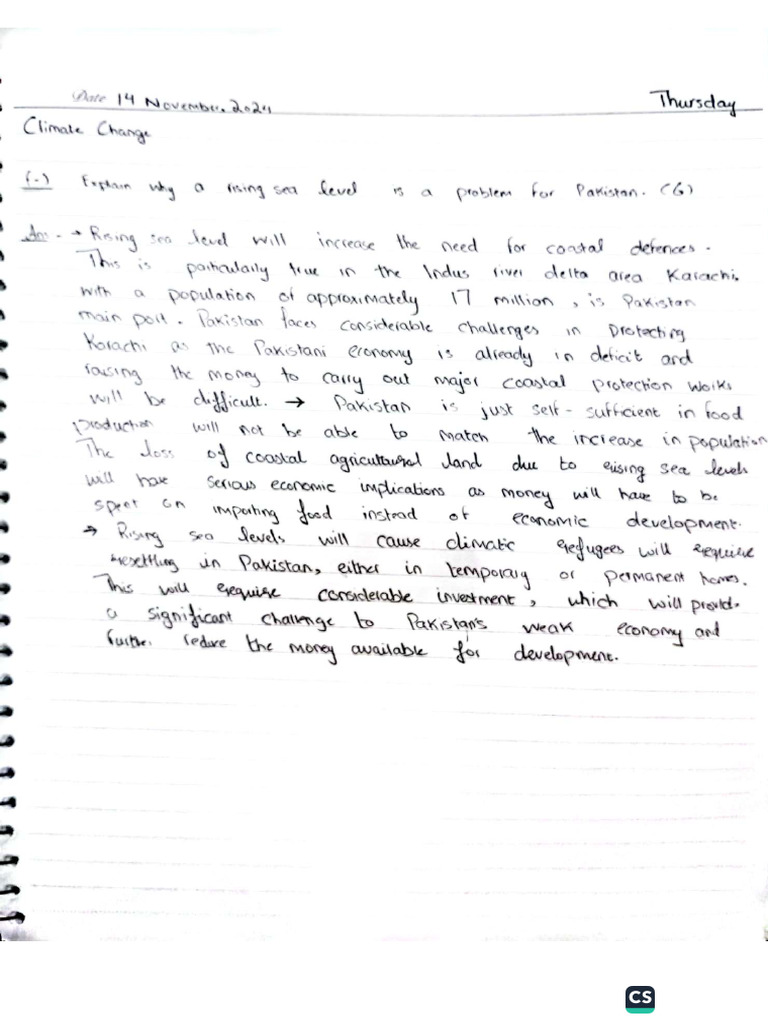 Date 14 November. 2024 Thursday
Climate Change
(-) Explain why a rising sea level is a problem for Pakistan. (6)
Ans - → Rising sea level will increase the need for coastal defences.
This is particularly true in the Indus river delta area Karachi.
with a population of approximately 17 million, is Pakistan
main port. Pakistan faces considerable challenges in protecting
Karachi as the Pakistani economy is already in deficit and
raising the money to carry out major coastal protection works
will be difficult. → Pakistan is just self-sufficient in food
production will not be able to match the increase in population
The loss of coastal agricultural land due to rising sea levels
will have serious economic implications as money will have to be
spent on importing food instead of economic development.
→ Rising sea levels will cause climatic refugees will require
resettling in Pakistan, either in temporary or permanent homes.
This will require considerable investment, which will provide
a significant challenge to Pakistan's weak economy and
further reduce the money available for development.
CS